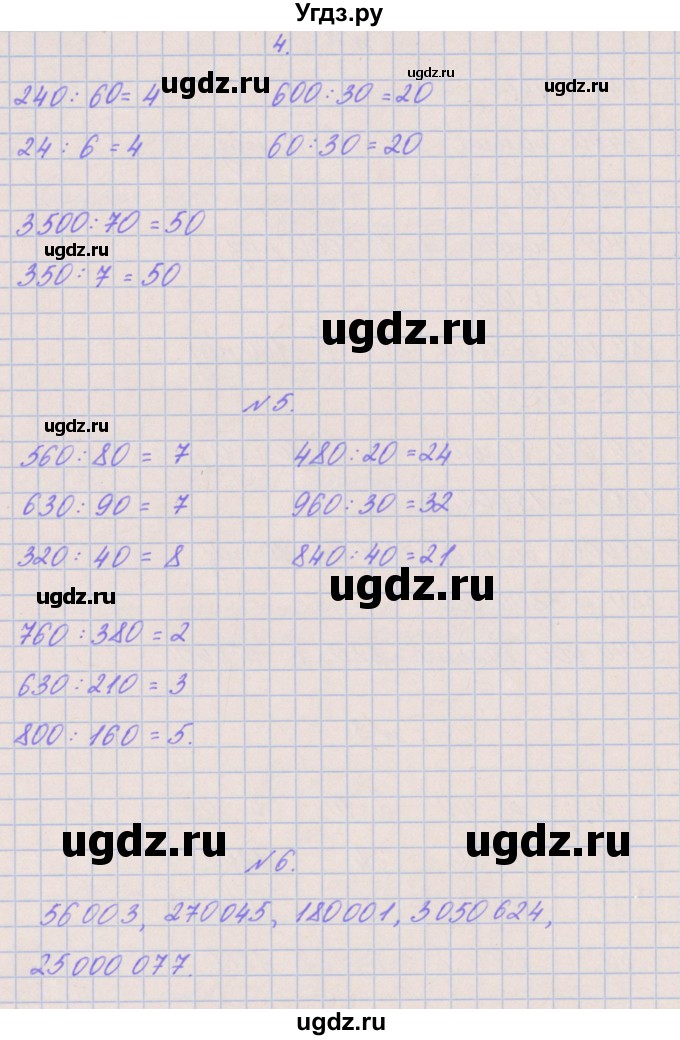 Угдз.ру
4.
240 : 60 = 4 600 : 30 = 20
24 : 6 = 4 60 : 30 = 20
3500 : 70 = 50
350 : 7 = 50
№5.
560 : 80 = 7 480 : 20 = 24
630 : 90 = 7 960 : 30 = 32
320 : 40 = 8 840 : 40 = 21
760 : 380 = 2
630 : 210 = 3
800 : 160 = 5.
№6.
56003, 270045, 180001, 3050624,
25000077.
ugdz.ru
ugdz.ru
ugdz.ru
ugdz.ru
ugdz.ru
ugdz.ru
ugdz.ru
ugdz.ru
ugdz.ru
ugdz.ru
ugdz.ru